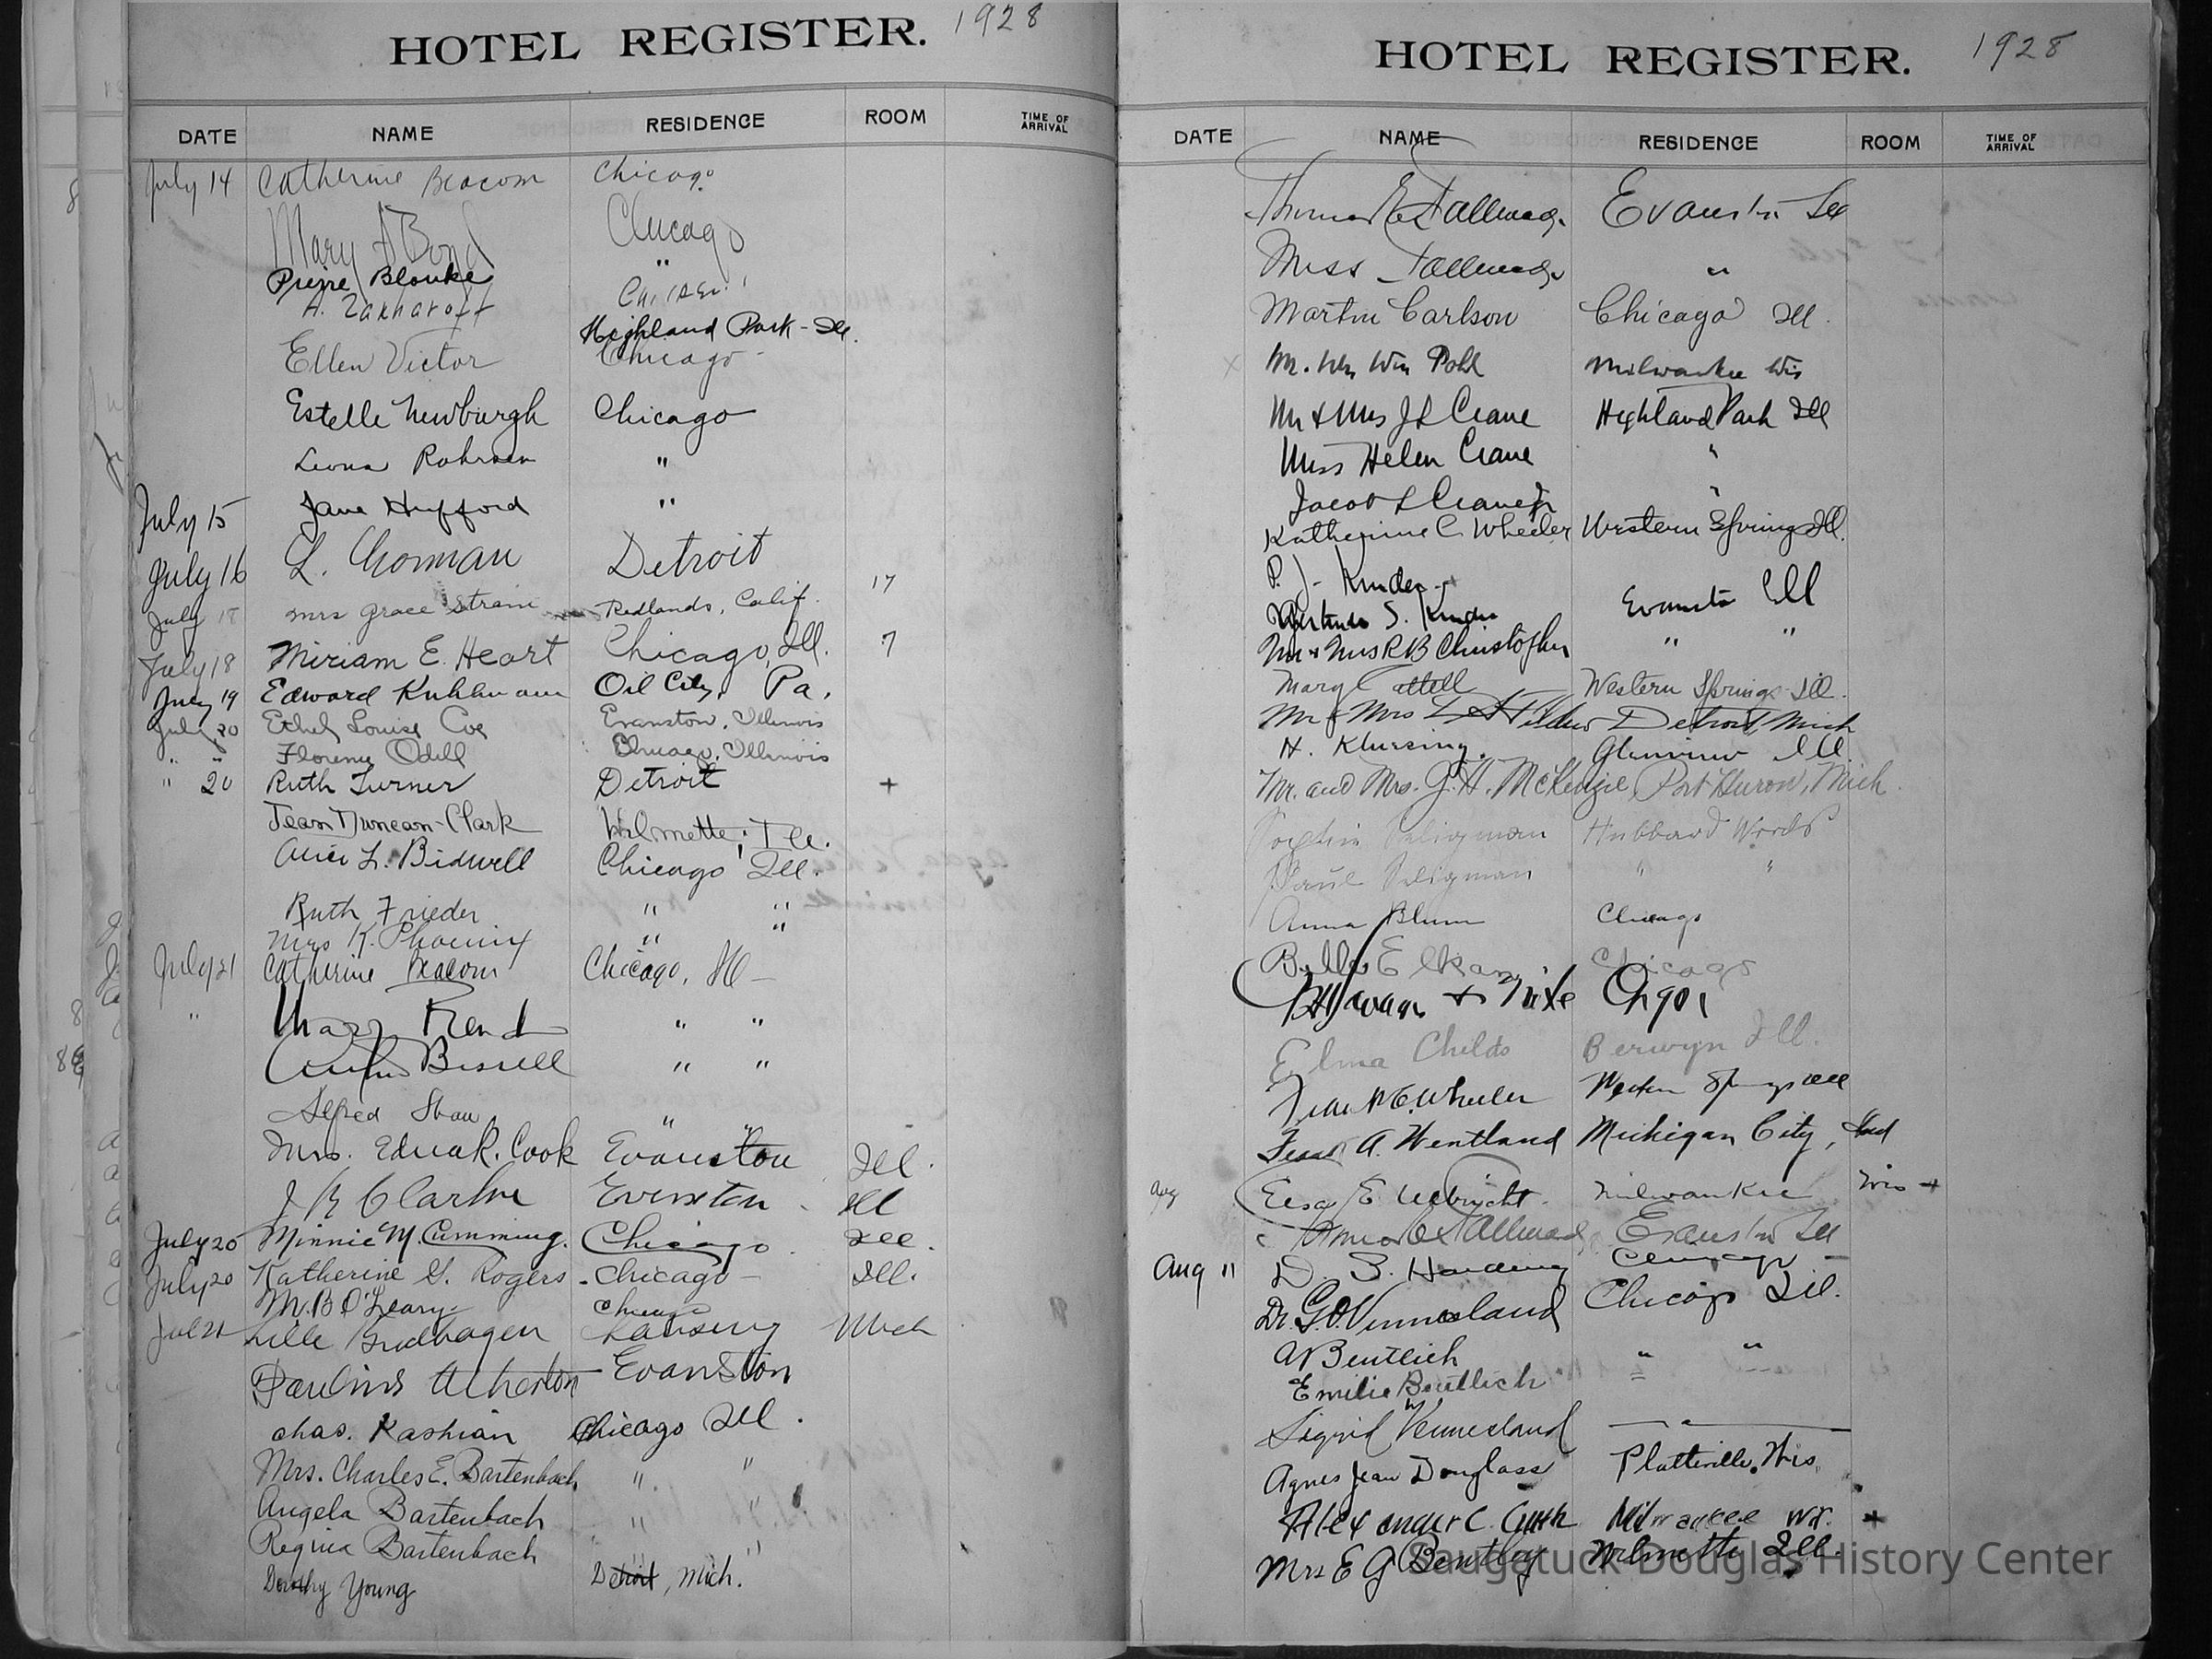 HOTEL REGISTER. 1928
DATE NAME RESIDENCE ROOM TIME OF ARRIVAL
July 14 Catherine Beacom Chicago
Mary A Bond Chicago
Pierre Blouke "
A. Zakharoff
Highland Park - Ill.
Ellen Victor Chicago -
Estelle Newburgh Chicago
Leona Rohrsen "
July 15 Jane Hufford "
July 16 L. Chorman Detroit
July 18 Mrs Grace Strain Redlands, Calif. 17
July 18 Miriam E. Heart Chicago, Ill. 7
July 19 Edward Kuhlman Oil City, Pa.
July 20 Ethel Louise Coe Evanston, Illinois
" " Florence Odell Chicago, Illinois
" 20 Ruth Turner Detroit +
Jean Duncan-Clark Wilmette, Ill.
Alice L. Bidwell Chicago Ill.
Ruth Frieder " "
Mrs K. Phoenix " "
July 21 Catherine Beacom Chicago, Ill -
" " "
Bissell " "
Alfred Shaw " "
Mrs. Edna R. Cook Evanston Ill.
Evanston Ill
July 20 Minnie M. Cumming. Chicago Ill.
July 20 Katherine G. Rogers - Chicago - Ill.
M. B O'Leary Chicago
Jul 21 Lansing Mich
Pauline Atherton Evanston
Chas. Kashian Chicago Ill.
Mrs. Charles E. Bartenbach " "
Angela Bartenbach " "
Regina Bartenbach " "
Dorothy Young Detroit, Mich.
HOTEL REGISTER. 1928
DATE NAME RESIDENCE ROOM TIME OF ARRIVAL
Thomas E Tallmadge Evanston Ill
Miss Tallmadge "
Martin Carlson Chicago Ill.
Wm Pohl Milwaukee Wis
Mr & Mrs J L Crane Highland Park Ill
Miss Helen Crane "
Jacob L Crane Jr "
Katherine C. Wheeler Western Springs Ill.
P. J.
Gertrude S. Evanston Ill
Mr & Mrs R B Christopher " "
Mary Western Springs Ill.
Mr & Mrs Detroit, Mich
H. Glenview Ill
Mr. and Mrs. G. H. McKenzie, Port Huron, Mich.
Seligman Hubbard Woods
Paul Seligman " "
Anna Blum Chicago
Belle Elkan Chicago
+ Wife Chgo
Elma Childs Berwyn Ill.
Wheeler Western Springs Ill
A. Wentland Michigan City, Ind
Aug Elsa E. Ulbricht. Milwaukee Wis +
Tallmadge Evanston Ill
Aug 11 D. S. Harding Chicago -
Dr. G. O. Vennesland Chicago Ill.
A Beutlich " "
Emilie Beutlich =
Sigrid Vennesland "
Agnes Jean Douglass Platteville, Wis.
Alexander C. Guth Milwaukee Wis. +
Mrs E G Bentley Wilmette Ill.
Saugatuck-Douglas History Center